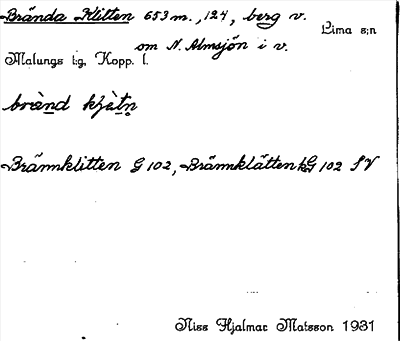 Brända Klitten 653 m., 124, berg v.
Lima s:n
om N. Almsjön i v.
Malungs t:g, Kopp. l.
brànd kjètn
Brännklitten G 102, Brännklätten G 102 SV
Niss Hjalmar Matsson 1931